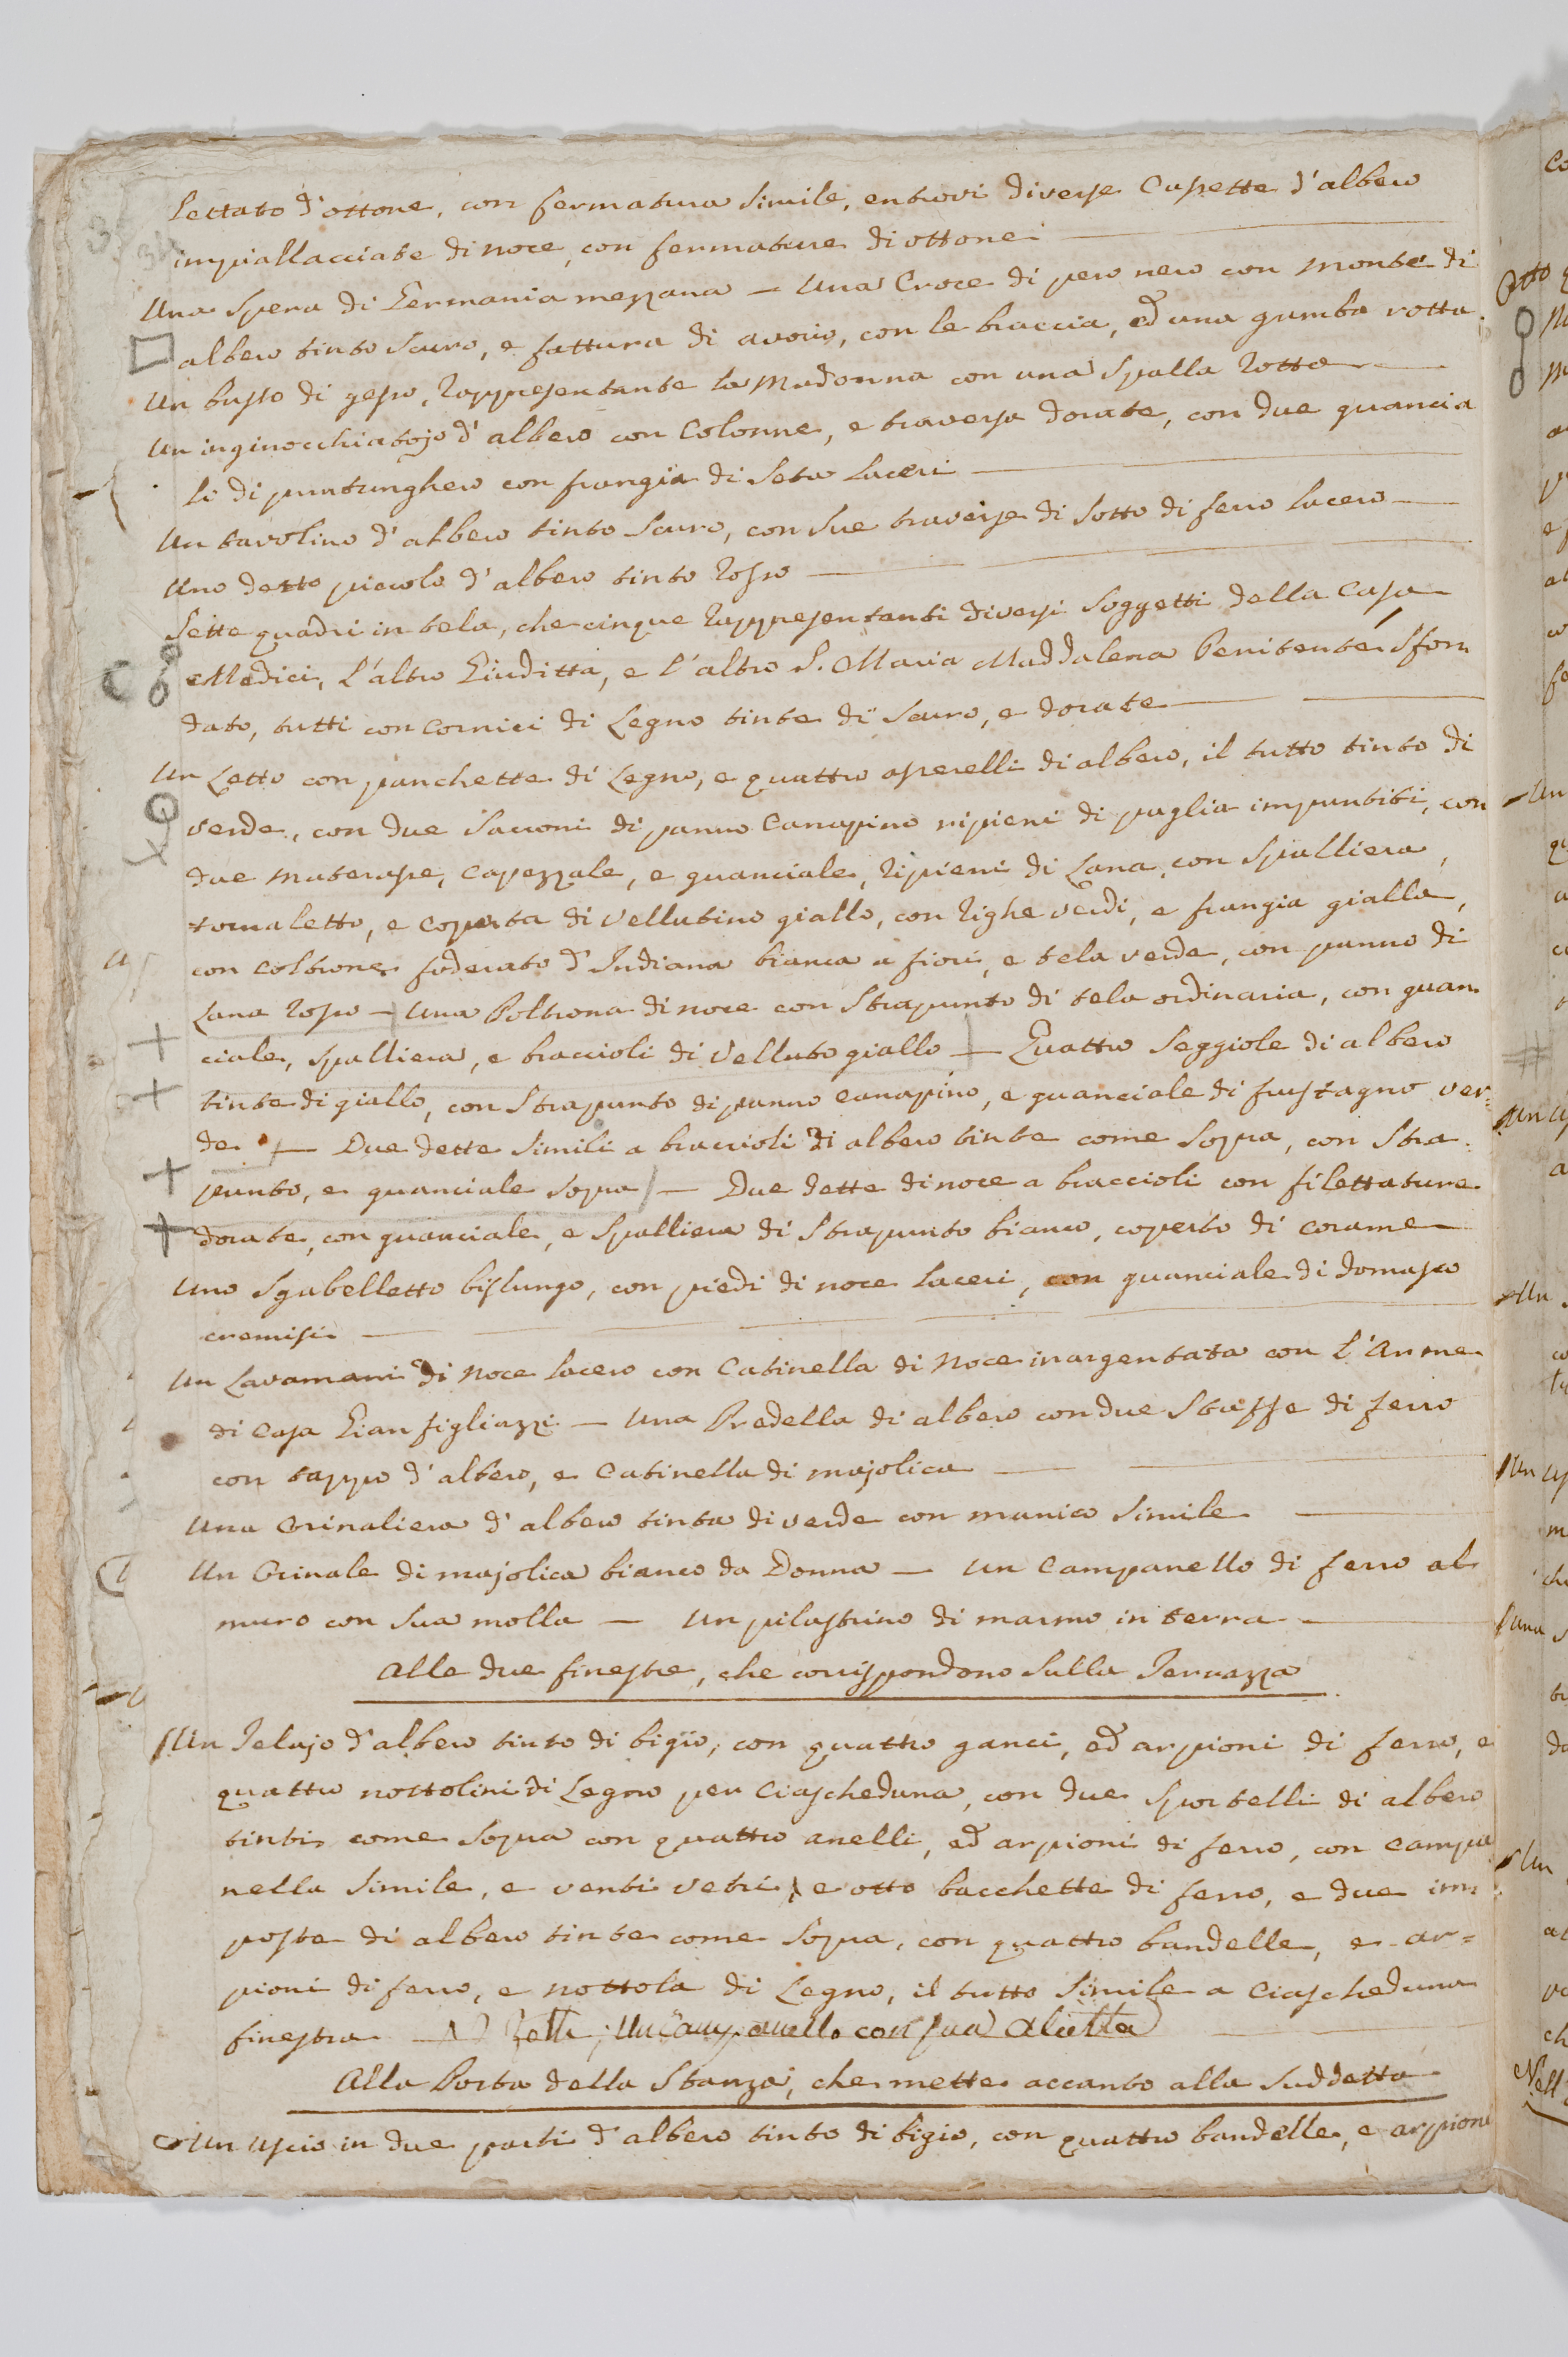 lettato d'ottone, con fermatura simile, entrovi diverse Casette d'albero
impiallacciate di noce, con fermature di ottone
Una Spera di Germania mezzana — Una Croce di pero nero con monte di
albero tinto scuro, e fattura di avorio, con le braccia, ed una gamba rotta.
Un busto di gesso, rappresentante la Madonna con una Spalla rotta
Un inginocchiatojo d'albero con Colonne, e traversa dorate, con due guancia
li di puntunghero con frangia di Seta laceri
Un tavolino d'albero tinto scuro, con sue traverse di sotto di ferro lacero
Uno detto piccolo d'albero tinto rosso
Sette quadri in tela, che cinque rappresentanti diversi Soggetti della Casa
Medici, l'altro Giuditta, e l'altro S. Maria Maddalena Penitente sfon
dato, tutti con Cornici di Legno tinte di scuro, e dorate
Un Letto con panchette di Legno, e quattro asserelli di albero, il tutto tinto di
verde, con due Sacconi di panno Canapino ripieni di paglia impuntiti, con
due materasse, Capezzale, e guanciale, ripieni di Lana, con Spalliera,
tornaletto, e Coperta di Vellutino giallo, con righe verdi, e frangia gialla,
con coltrone foderato d'Indiana bianca a fiori, e tela verde, con panno di
Lana rosso — Una Poltrona di noce con Strapunto di tela ordinaria, con guan
ciale, spalliera, e braccioli di Velluto giallo — Quattro Seggiole di albero
tinte di giallo, con Strapunto di panno canapino, e guanciale di frustagno ver=
de — Due dette simili a braccioli di albero tinte come sopra, con Stra
punto, e guanciale sopra — Due dette di noce a braccioli con filettature
dorate, con guanciale, e Spalliera di Strapunto bianco, coperto di corame
Uno Sgabelletto bislungo, con piedi di noce laceri, con guanciale di domasco
cremisi
Un Lavamani di Noce lacero con Catinella di Noce inargentata con l'Arme
di Casa Gianfigliazzi — Una Predella di albero con due Staffe di ferro
con tappo d'albero, e Catinella di majolica
Una Orinaliera d'albero tinta di verde con manico simile
Un Orinale di majolica bianco da Donna — Un Campanello di ferro al
muro con sua molla — Un pilastrino di marmo in terra
Alle due finestre, che corrispondono sulla Terrazza
Un Telajo d'albero tinto di bigio, con quattro ganci, ed arpioni di ferro, e
quattro nottolini di Legno per Ciascheduna, con due Sportelli di albero
tinti come sopra con quattro anelli, ed arpioni di ferro, con campa
nella simile, e venti vetri, e otto bacchette di ferro, e due im
poste di albero tinte come sopra, con quattro bandelle, e ar=
pioni di ferro, e nottola di Legno, il tutto simile a Ciascheduna
finestra — Un Campanello con sua Alietta
Alla Porta della Stanza, che mette accanto alla Suddetta
Un Uscio in due parti d'albero tinto di bigio, con quattro bandelle, e arpioni